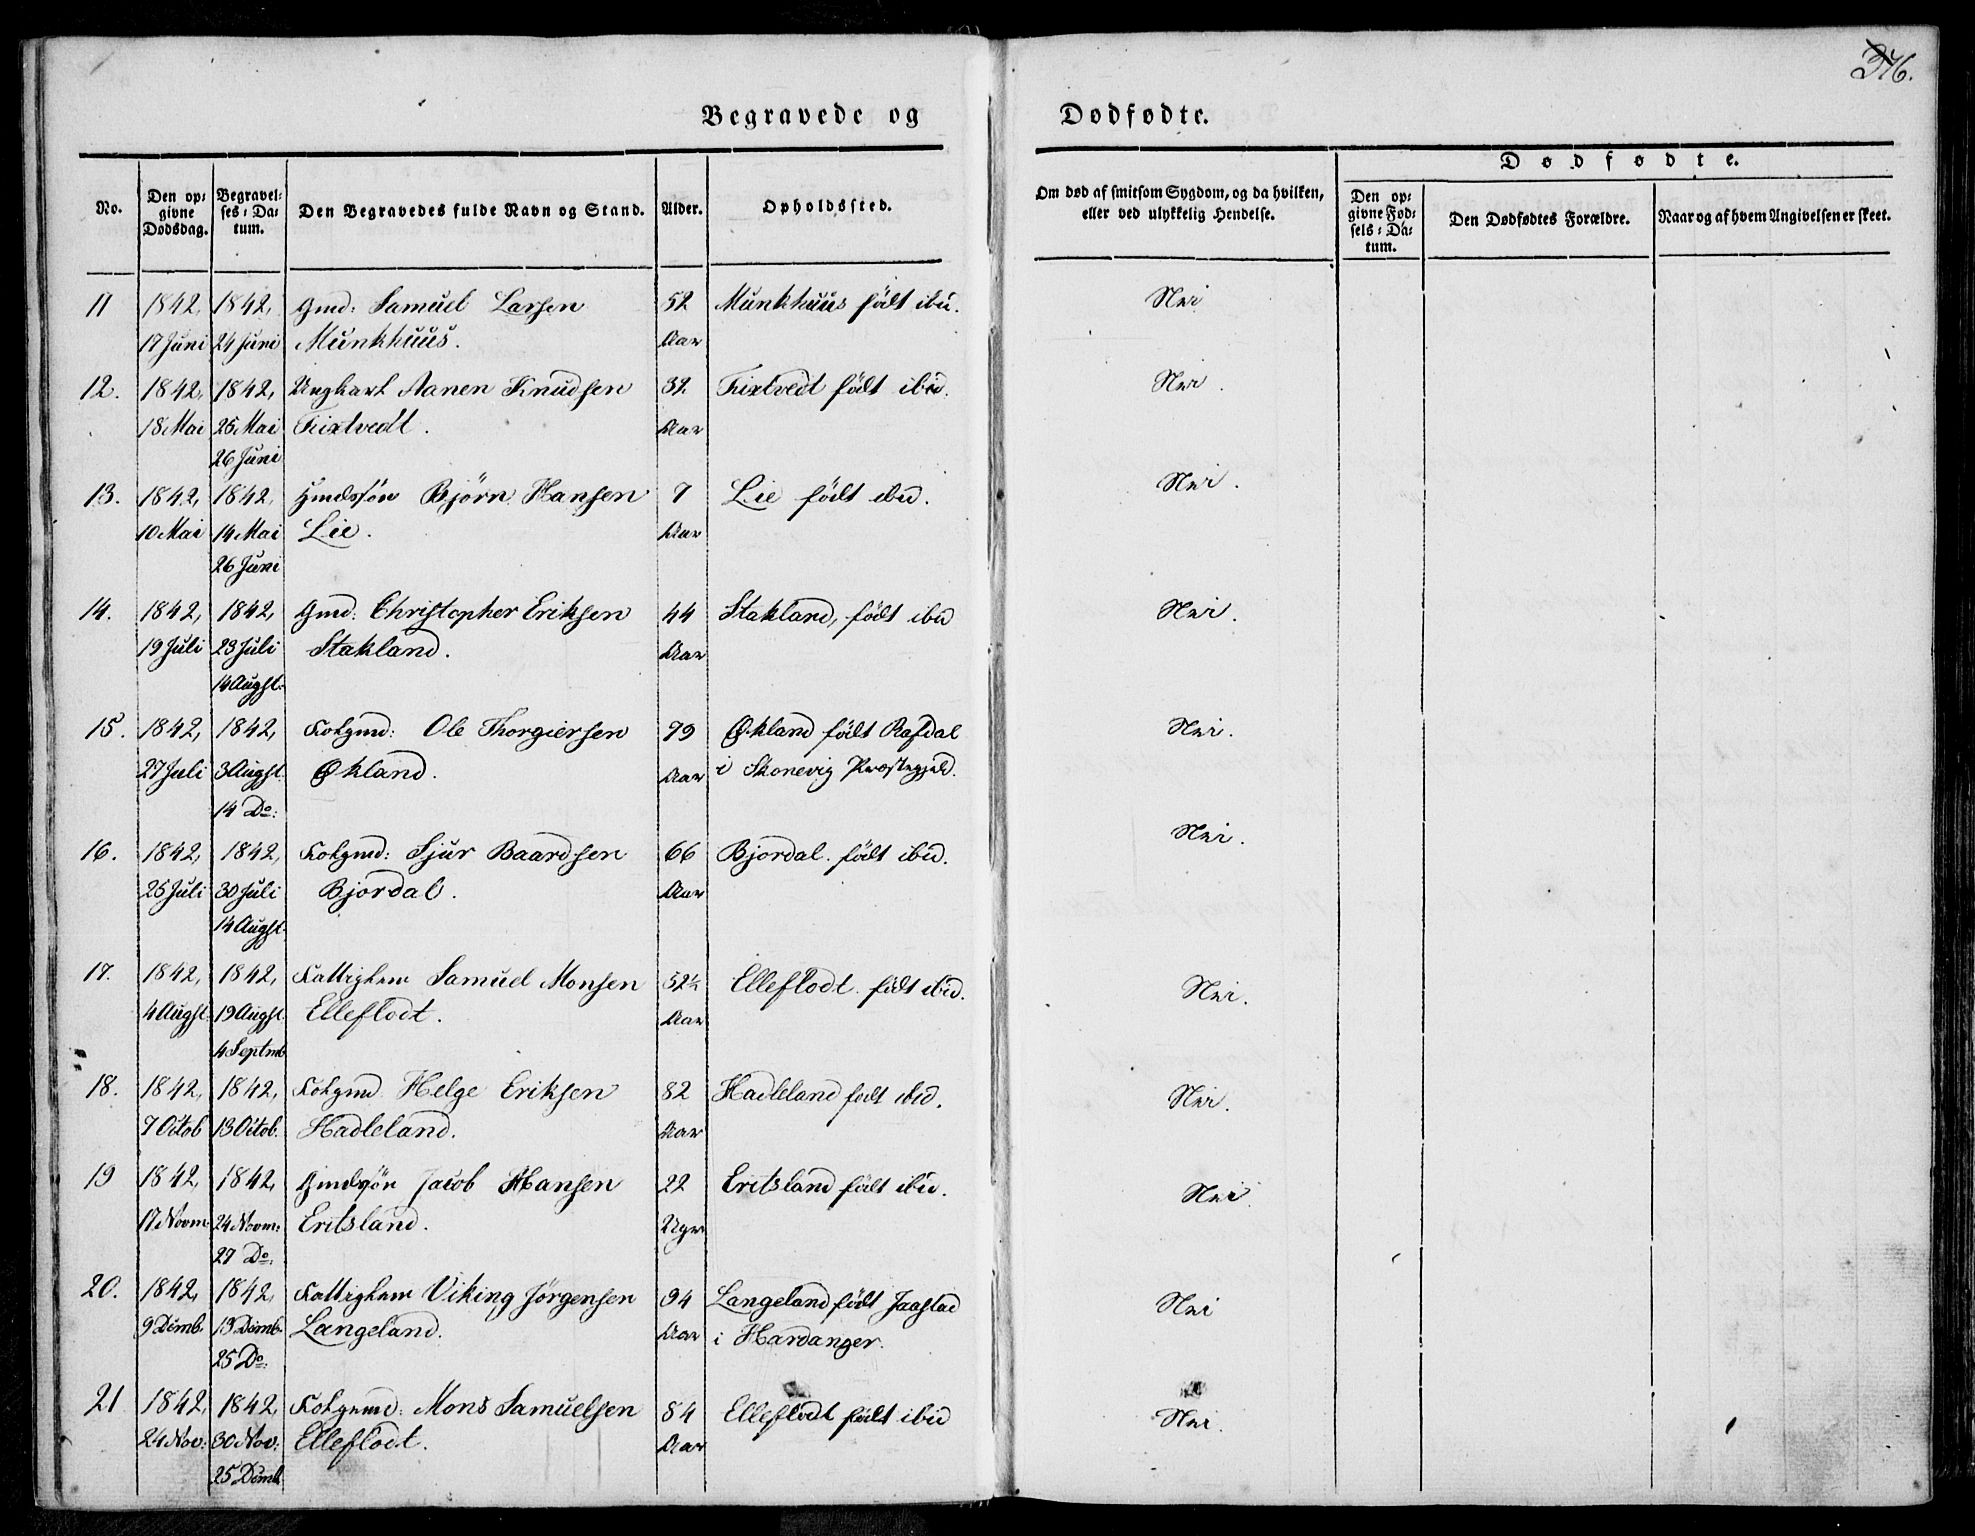 376.
Begravede og Dødfødte.
No.
Den op-
givne
Dødsdag.
Begravel-
ses-Da-
tum.
Den Begravedes fulde Navn og Stand.
Alder.
Opholdssted.
Om død af smitsom Sygdom, og da hvilken,
eller ved ulykkelig Hendelse.
Dødfødte.
Den op-
givne Fød-
sels-Da-
tum.
Den Dødfødtes Forældre.
Naar og af hvem Angivelsen er skeet.
11 1842, 1842, Gmd: Samuel Larsen 52 Munkhuus født ibid. Nei
17 Juni 24 Juni Munkhuus. Aar
12. 1842, 1842, Ungkarl Aanen Knudsen 32 Tixtvedt født ibid. Nei.
18 Mai 25 Mai Tixtvedt. Aar
26 Juni
13. 1842, 1842, Gmdssön Björn Hansen 7 Lie født ibid. Nei.
10 Mai 14 Mai Lie. Aar
26 Juni
14. 1842, 1842, Gmd: Christopher Eriksen 44 Stakland, født ibid Nei.
19 Juli 23 Juli Stakland. Aar
14 Augst.
15. 1842, 1842, Folgmd: Ole Thorgiersen 79 Økland født Rafdal Nei.
27 Juli 3 Augst. Økland. Aar i Skonevig Præstegjeld.
14 Do:
16. 1842, 1842, Folgmd: Sjur Baardsen 66 Bjordal. født ibid. Nei.
25 Juli 30 Juli Bjordal. Aar
14 Augst.
17. 1842, 1842, Fattiglem Samuel Monsen 52½ Elleflodt. født ibid. Nei.
4 Augst. 19 Augst. Elleflodt. Aar
4 Septmb
18. 1842, 1842, Folgmd Helge Eriksen 82 Hadleland født ibid. Nei.
7 Octob 13 Octob. Hadleland. Aar
19 1842, 1842, Gmdsön Jacob Hansen 22 Eritsland født ibid. Nei
17 Novm: 24 Novm: Eritsland. Uger
27 Do:
20. 1842, 1842, Fattiglem Viking Jörgensen 94 Langeland født Jaastad Nei
9 Demb. 13 Demb. Langeland. Aar i Hardanger.
25 Do:
21 1842, 1842, Folgmd: Mons Samuelsen 84 Elleflodt født ibid Nei.
24 Nov: 30 Nov: Elleflodt. Aar
25 Demb.